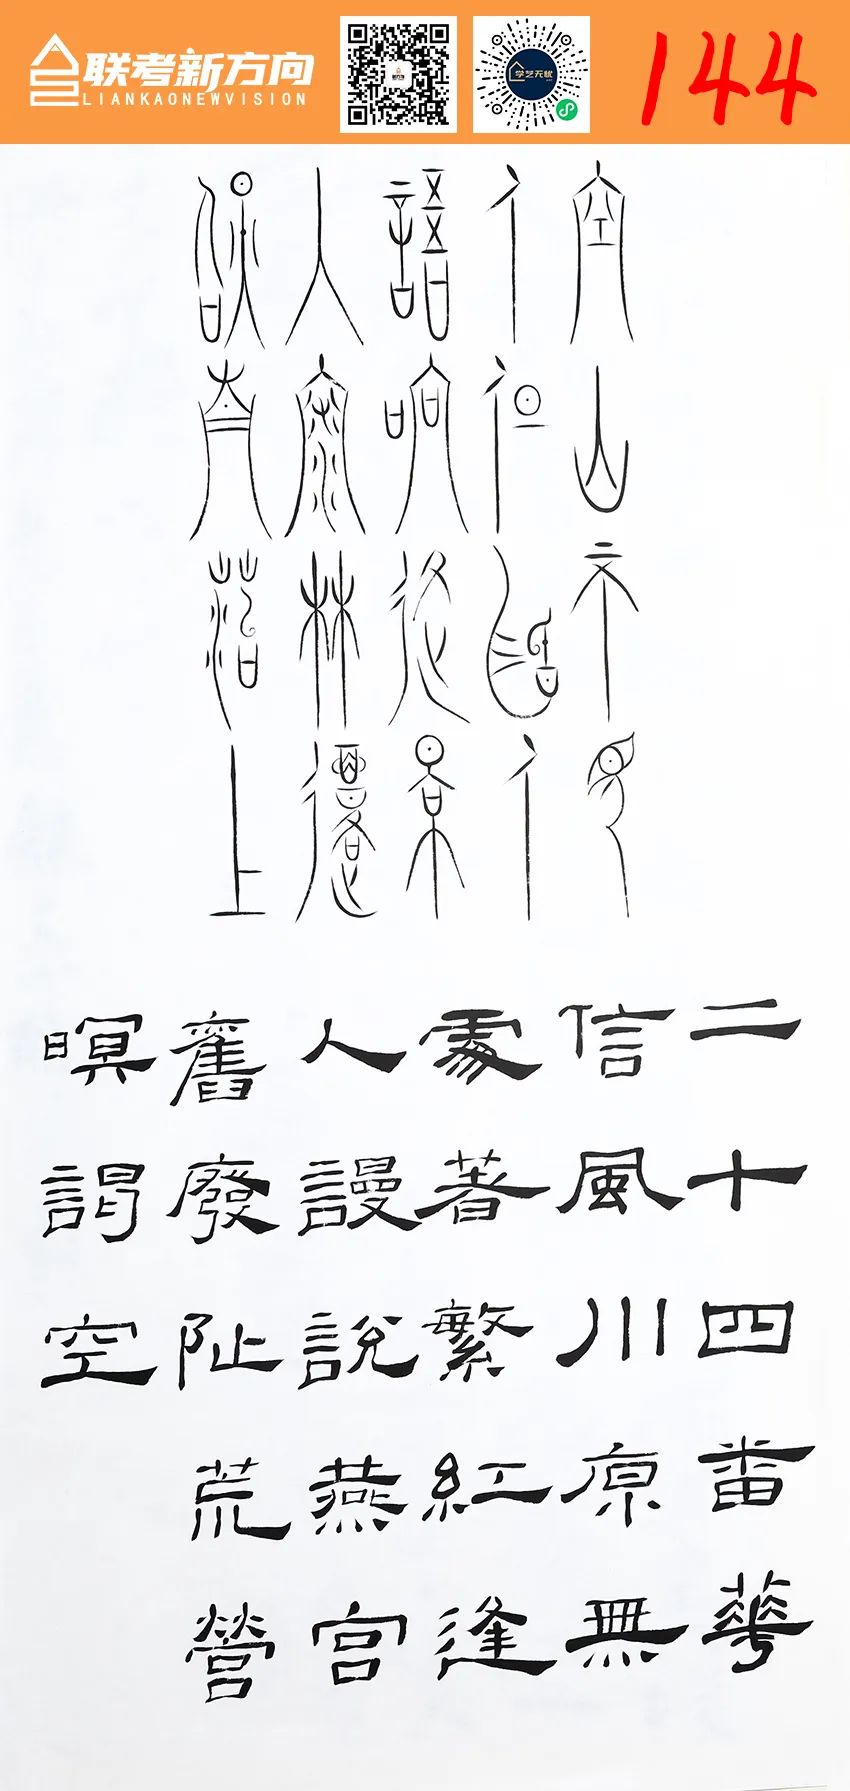 联考新方向
LIANKAONEWVISION
学艺无忧
144
空山不見
人但聞人
語響返景
入深林復
照青苔上
二十四番華
信風川原無
處著繁紅逢
人謾說燕宮
舊廢阯荒營
暝謁空